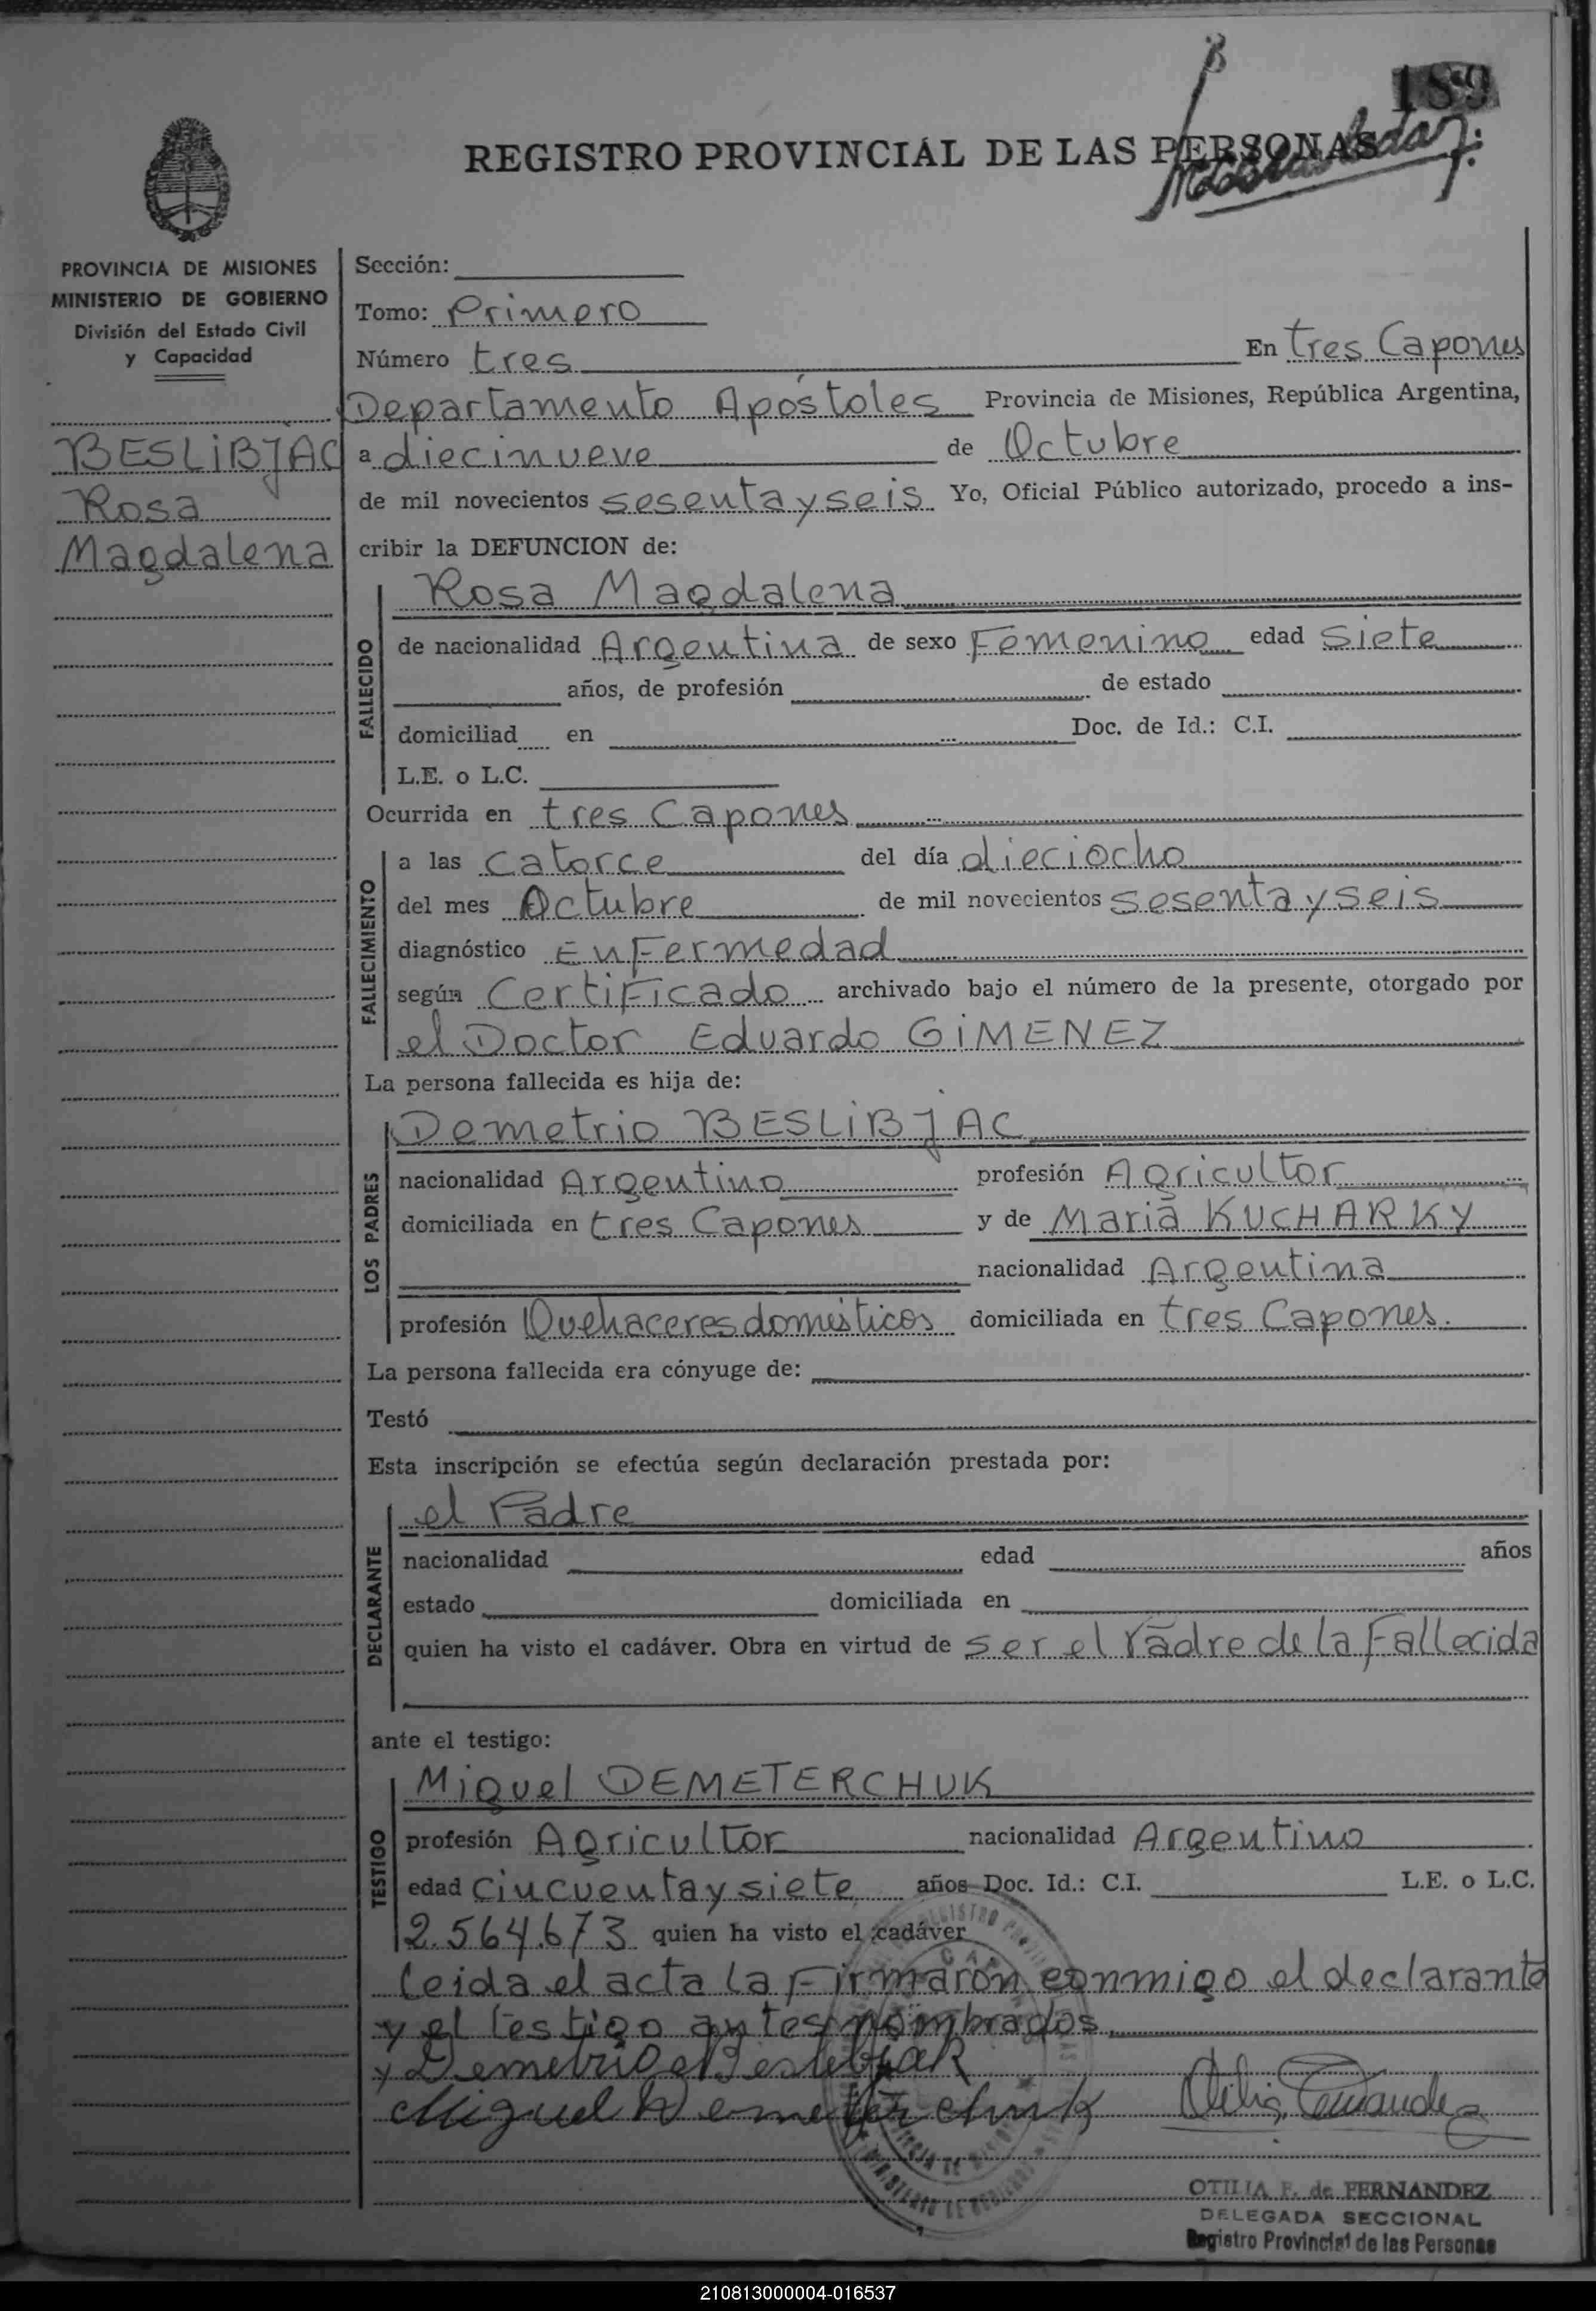 189
REGISTRO PROVINCIAL DE LAS PERSONAS
PROVINCIA DE MISIONES
MINISTERIO DE GOBIERNO
División del Estado Civil
y Capacidad
BESLiBJAC
Rosa
Magdalena
Sección:
Tomo: Primero
Número tres En tres Capones
Departamento Apóstoles Provincia de Misiones, República Argentina,
a diecinueve de Octubre
de mil novecientos sesenta y seis Yo, Oficial Público autorizado, procedo a ins-
cribir la DEFUNCION de:
FALLECIDO
Rosa Magdalena
de nacionalidad Argentina de sexo Femenino edad siete
años, de profesión de estado
domiciliad en Doc. de Id.: C.I.
L.E. o L.C.
Ocurrida en tres Capones
FALLECIMIENTO
a las catorce del día dieciocho
del mes Octubre de mil novecientos sesenta y seis
diagnóstico Enfermedad
según Certificado archivado bajo el número de la presente, otorgado por
el Doctor Eduardo GiMENEZ
La persona fallecida es hija de:
LOS PADRES
Demetrio BESLiBJAC
nacionalidad Argentino profesión Agricultor
domiciliada en tres Capones y de Maria KUCHARKY
nacionalidad Argentina
profesión Quehaceres domésticos domiciliada en tres Capones.
La persona fallecida era cónyuge de:
Testó
Esta inscripción se efectúa según declaración prestada por:
DECLARANTE
el Padre
nacionalidad edad años
estado domiciliada en
quien ha visto el cadáver. Obra en virtud de ser el Padre de la Fallecida
ante el testigo:
TESTIGO
Miguel DEMETERCHUK
profesión Agricultor nacionalidad Argentino
edad cincuenta y siete años Doc. Id.: C.I. L.E. o L.C.
2.564.673 quien ha visto el cadáver
leida el acta la Firmaron conmigo el declarante
y el testigo antes nombrados
Demetrio Beslebjak
Miguel Demeterchuk
OTILIA F. de FERNANDEZ
DELEGADA SECCIONAL
Registro Provincial de las Personas
210813000004-016537